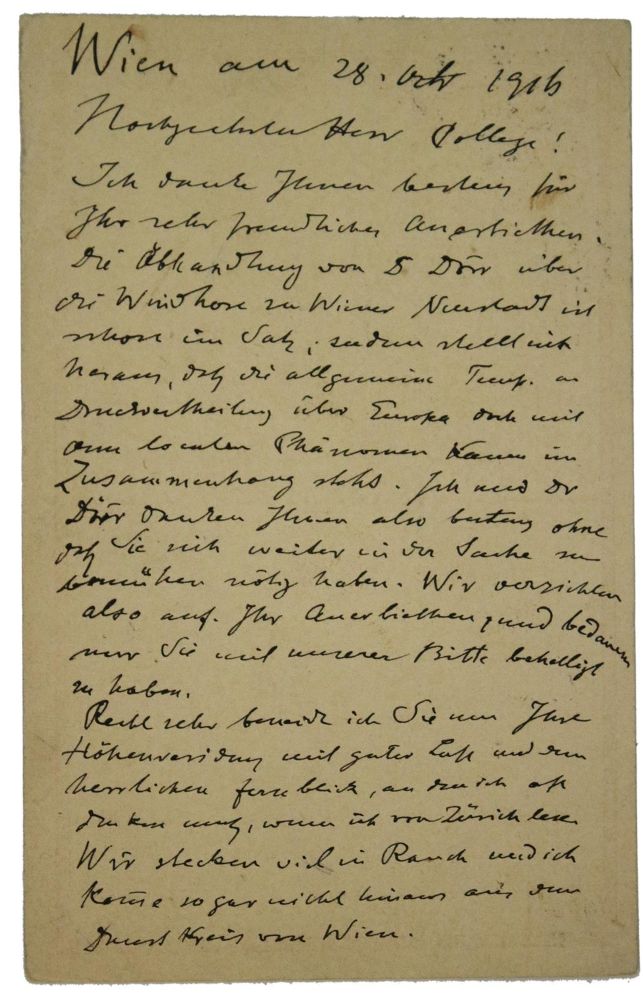 Wien am 28. Okt 1916
Hochgeehrter Herr College!
Ich danke Ihnen bestens für
Ihr sehr freundliches Anerbiethen.
Die Abhandlung von D Dörr über
die Windhose zu Wiener Neustadt ist
schon im Satz, zudem stellt sich
heraus, daß die allgemeine Temp. u
Druckvertheilung über Europa doch mit
dem localen Phänomen kaum im
Zusammenhang steht. Ich und Dr
Dörr danken Ihnen also bestens ohne
daß Sie sich weiter in der Sache zu
bemühen nötig haben. Wir verzichten
also auf Ihr Anerbiethen, und bedauern
nur Sie mit unserer Bitte behelligt
zu haben.
Recht sehr beneide ich Sie um Ihre
Höhenresidenz mit guter Luft und dem
herrlichen Fernblick, an den ich oft
denken muß, wenn ich von Zürich lese
Wir stecken viel in Rauch und ich
kom̅e sogar nicht hinaus aus dem
Dunstkreis von Wien.